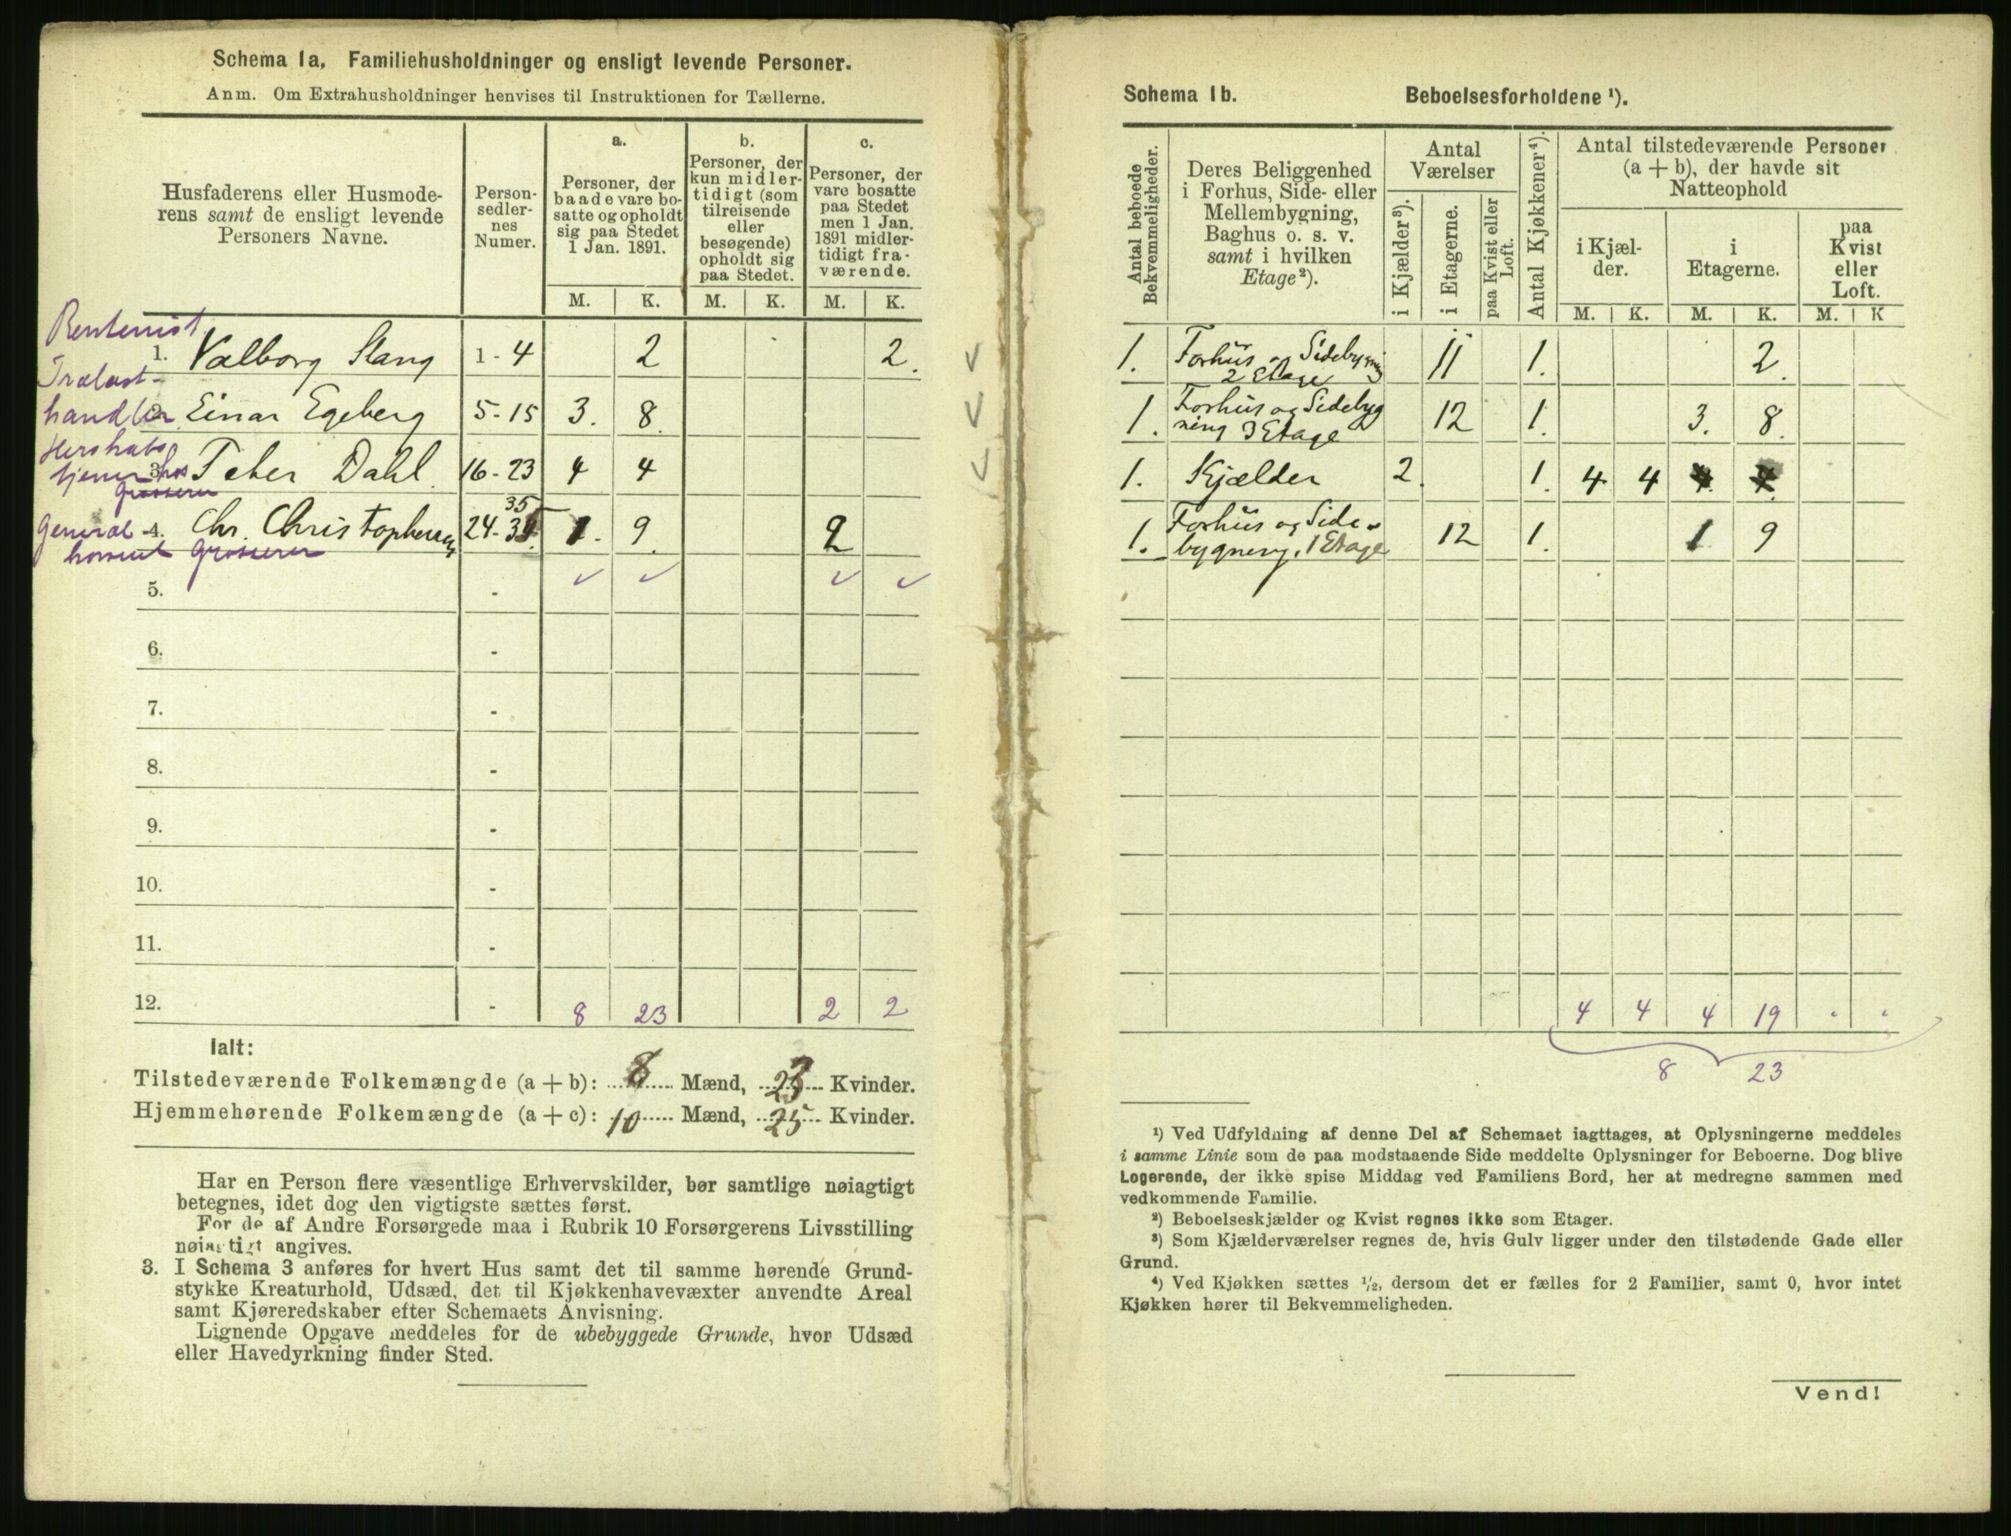 Schema 1a, Familiehusholdninger og ensligt levende Personer.
Anm. Om Extrahusholdninger henvises til Instruktionen for Tællerne.
Husfaderens eller Husmode-
rens samt de ensligt levende
Personers Navne.
Person-
sedler-
nes
Numer.
a.
Personer, der
baade vare bo-
satte og opholdt
sig paa Stedet
1 Jan. 1891.
b.
Personer, der
kun midler-
tidigt (som
tilreisende
eller
besøgende)
opholdt sig
paa Stedet.
c.
Personer, der
vare bosatte
paa Stedet
men 1 Jan.
1891 midler-
tidigt fra-
værende.
M. K. M. K. M. K.
Rentenist
1. Valborg Stang 1-4 2 2.
Trælast-
handler
2. Einar Egeberg 5-15 3. 8.
Herskabs
tjener hos
3. Peter Dahl. 16-23 4 4
grosserer
General
4. Chr. Christophersen 24-35 35 1. 9. 2
konsul grosserer
5. -
6. -
7. -
8. -
9. -
10. -
11. -
12. - 8 23 2 2
Ialt:
Tilstedeværende Folkemængde (a + b): 8 Mænd, 23 Kvinder.
Hjemmehørende Folkemængde (a + c): 10 Mænd, 25 Kvinder.
Har en Person flere væsentlige Erhvervskilder, bør samtlige nøiagtigt
betegnes, idet dog den vigtigste sættes først.
For de af Andre Forsørgede maa i Rubrik 10 Forsørgerens Livsstilling
nøiagtigt angives.
3. I Schema 3 anføres for hvert Hus samt det til samme hørende Grund-
stykke Kreaturhold, Udsæd, det til Kjøkkenhavevæxter anvendte Areal
samt Kjøreredskaber efter Schemaets Anvisning.
Lignende Opgave meddeles for de ubebyggede Grunde, hvor Udsæd
eller Havedyrkning finder Sted.
Schema 1b. Beboelsesforholdene ¹).
Antal beboede
Bekvemmeligheder.
Deres Beliggenhed
i Forhus, Side- eller
Mellembygning,
Baghus o. s. v.
samt i hvilken
Etage²).
Antal
Værelser
i Kjælder³).
i Etagerne.
paa Kvist eller
Loft.
Antal Kjøkkener⁴).
Antal tilstedeværende Personer
(a + b), der havde sit
Natteophold
i Kjæl-
der.
i
Etagerne.
paa
Kvist
eller
Loft.
M. K. M. K. M. K
1. Forhus og Sidebygning
2 Etage 11 1. 2.
1. Forhus og Sidebyg
ning 3 Etage 12 1. 3. 8.
1. Kjælder 2. 1. 4 4 4 4
1. Forhus og Side-
bygning, 1 Etage 12 1. 1 9
4 4 4 19 " "
8 23
¹) Ved Udfyldning af denne Del af Schemaet iagttages, at Oplysningerne meddeles
i samme Linie som de paa modstaaende Side meddelte Oplysninger for Beboerne. Dog blive
Logerende, der ikke spise Middag ved Familiens Bord, her at medregne sammen med
vedkommende Familie.
²) Beboelseskjælder og Kvist regnes ikke som Etager.
³) Som Kjælderværelser regnes de, hvis Gulv ligger under den tilstødende Gade eller
Grund.
⁴) Ved Kjøkken sættes ½, dersom det er fælles for 2 Familier, samt 0, hvor intet
Kjøkken hører til Bekvemmeligheden.
Vend!